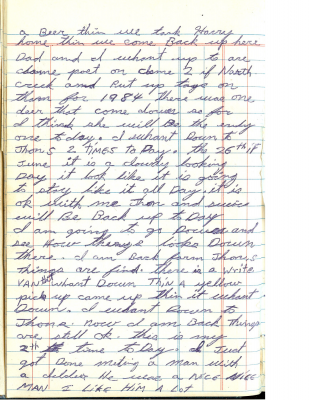 a Beer thin we took Harry
home thin we come Back up here
Dad and I whant up to are
chome post on chome 2 if North
creek and Put up tags on
them for 1984 there was one
deer that come down so for
I think she will Be the only
one to day. I whant Down to
Thons 2 TIMES TO Day. the 26th if
June it is a cloudy looking
Day it look like it is going
to stay like it all Day. it is
ok with me Thon and
will Be Back up to Day
I am going to go Down and
see How things looks Down
there. I am Back form Thons
things are find. there is a write
VAN that whant Down THIN A yellow
pick up came up thin it whant
Down. I whant Down to
Thons. Now I am Back things
are still ok. this is my
2th time to Day. I Just
got Done meting a man with
a He was a NICE
MAN I LIKE HIM A LOT